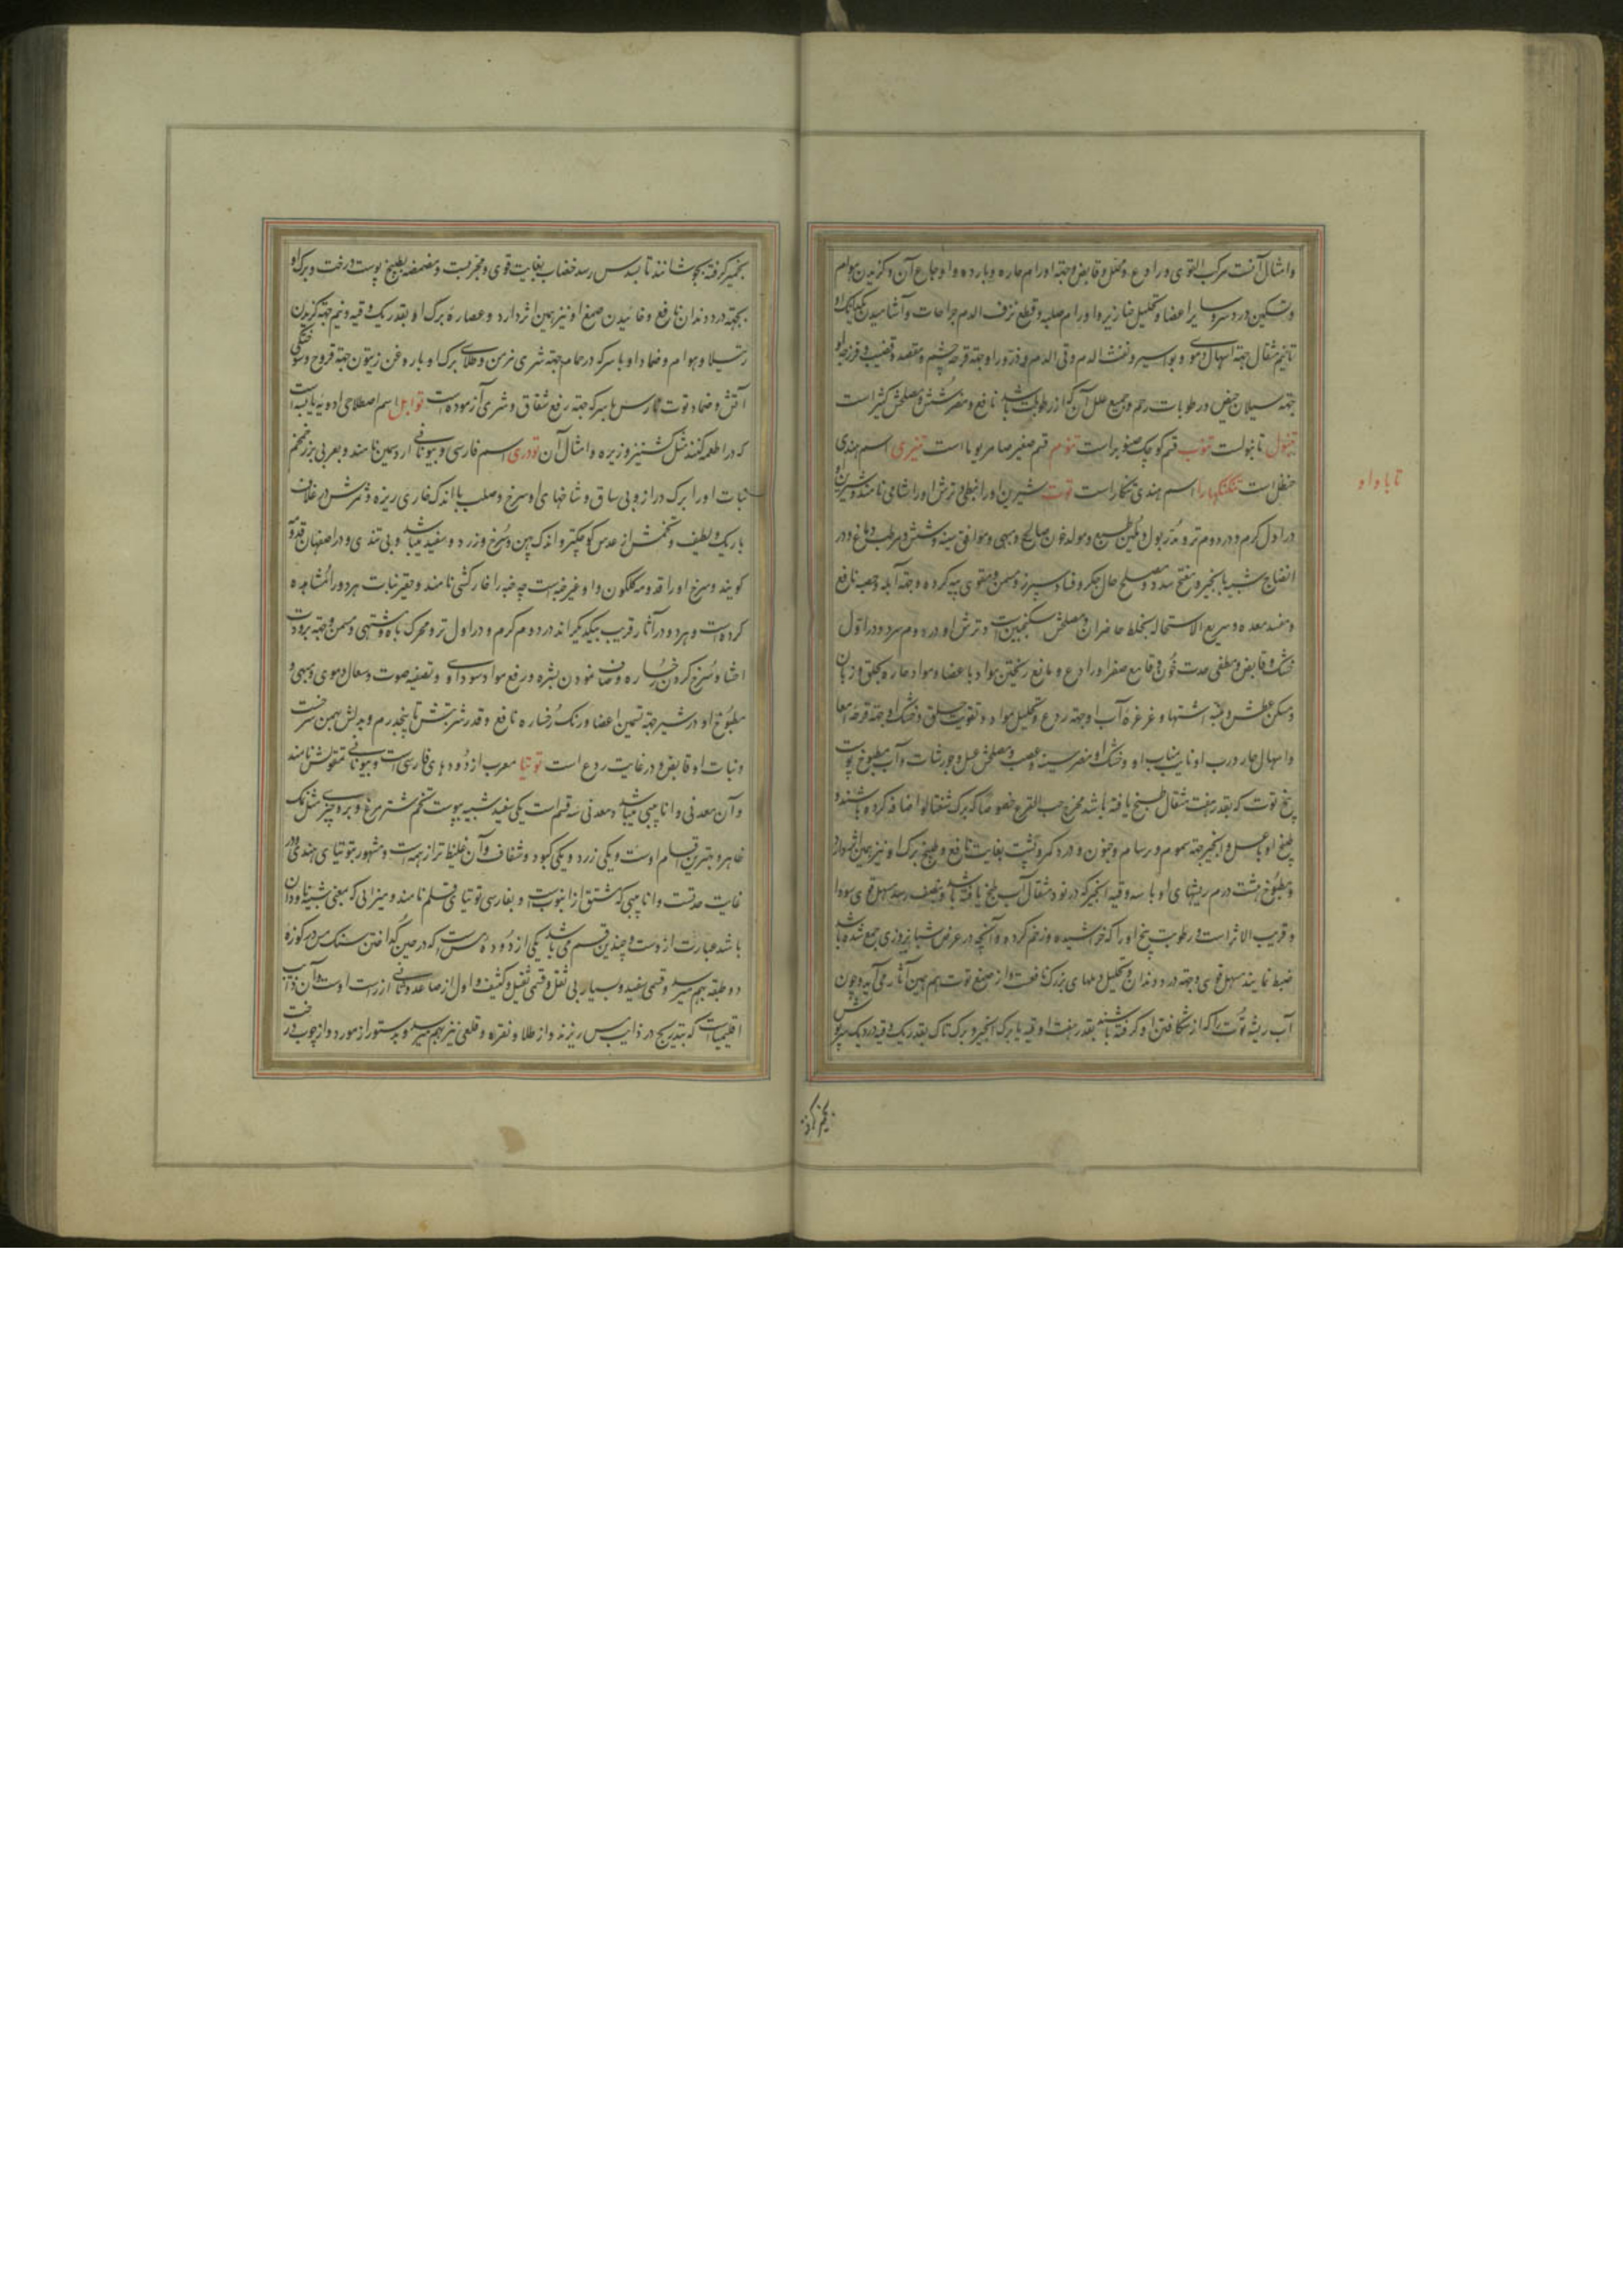 وامثال آنست مرکب القوی و رادع و محلل و قابض و جهة اورام حاره و بارده و اوجاع آن و گزیدن هوام
و تسکین درد سر و سایر اعضا و تحلیل خنازیر و اورام صلبه و قطع نزف الدم جراحات و آشامیدن
تا نیم مثقال جهة اسهال دموی و بواسیر و نفث الدم و قی الدم و ذرور او جهة قرحه چشم و مقعده و قضیب و فرزجه او
جهة سیلان حیض و رطوبات رحم و جمیع علل آن که از رطوبت باشد نافع و مضر شش و مصلحش کثیر است
تنبول تانبولست تنوب قسم کوچک صنوبر است تنوم قسم صغیر صامریوما است تیزی اسم هندی
حنظل است تنکنکهارا اسم هندی تنکار است توت شیرین او را نبطی و ترش او را شامی نامند و شیرین او
تا با واو
در اول گرم و در دوم تر و مدر بول و ملین طبع و مولد خون صالح و مبهی و موافق سینه و شش و مرطب دماغ و در
انضاج شبیه بانجیر و مفتح سدد و مصلح حال جگر و فساد سپرز و مسمن و مقوی پیه گرده و جهة آبله و حصبه نافع
و مفسد معده و سریع الاستحاله بخلط حاضر آن و مصلحش سکنجبین است و ترش او در دوم سرد و در اول
خشک و قابض و مطفی حدت خون و قامع صفرا و رادع و مانع ریختن مواد باعضا و مواد حاره بحلق و زبان
و مسکن عطش و منبه اشتها و غرغره آب او جهة ردع و تحلیل مواد و تقویت حلق و خشک او جهة قرحه امعا
و اسهال حار و رب او نایب مناب او و خشک او مضر سینه و عصب و مصلحش عسل و جوارشات و آب مطبوخ پوست
بیخ توت که بقدر هفت مثقال طبیخ یافته باشد مخرج حب القرع خصوصا که برگ شفتالو اضافه کرده باشند و
طبیخ او با عسل و انجیر جهة سموم و سرسام و جنون و درد کمر و پشت بغایت نافع و طبیخ برگ او نیز همین اثر دارد
و مطبوخ هشت درم ریشهای او با سه وقیه انجیر که در نود مثقال آب طبخ یافته باشد و بنصف رسد مسهل قوی سودا
و قریب الاثر است و رطوبت بیخ او را که خراشیده و زخم کرده و آنچه در عرض شبانه روزی جمع شده باشد
ضبط نمایند مسهل قوی و جهة درد دندان و تحلیل دملهای بزرگ نافعست و از صمغ توت هم همین آثار می آید و چون
آب ریشه توت را که از شکافتن او گرفته باشند بقدر هفت اوقیه با برگ انجیر و برگ تاک بقدر یک وقیه در دیک سرپوش
بخمیر گرفته
بخمیر گرفته بجوشانند تا بسدس رسد خضاب بغایت قوی و مجربست و مضمضه بطبیخ پوست درخت و برگ او
بجهة درد دندان نافع و خائیدن صمغ او نیز همین اثر دارد و عصاره برگ او بقدر یک وقیه و نیم جهة گزیدن
رتیلا و هوام و ضماد او با سرکه در حمام جهة شری مزمن و طلای برگ او با روغن زیتون جهة قروح و سوختگی
آتش و ضماد توت نارس با سرکه جهة رفع شقاق و شری آزموده است توابل اسم اصطلاحی ادویه یابسه است
که در اطعمه کنند مثل گشنیز و زیره و امثال آن تودری اسم فارسی و بیونانی اروسمین نامند و بعربی بزر خمخم
نبات او را برگ دراز و بی ساق و شاخهای او سرخ و صلب با اندک خاری ریزه و ثمرش در غلاف
باریک و لطیف و تخمش از عدس کوچکتر و اندک پهن و سرخ و زرد و سفید میباشد و بی تندی و در اصفهان قدومه
گویند و سرخ او را قدومه گلگون و او غیر خبه است چه خبه را خارکشی نامند و حقیر نبات هر دو را مشاهده
کرده است و هر دو در آثار قریب بیکدیگراند در دوم گرم و در اول تر و محرک باه و مشتهی و مسمن و جهة برودت
احشا و سرخ کردن رخساره و صاف نمودن بشره و رفع مواد سوداوی و تصفیه صوت و سعال دموی و مبهی و
مطبوخ او در شیر جهة تسمین اعضا و رنک رخساره نافع و قدر شربتش تا پنجدرم و بدلش بهمن سرخست
و نبات او قابض و در غایت ردع است توتیا معرب از دودهای فارسی است و بیونانی نامند
و آن معدنی و انابیبی میباشد و معدنی سه قسم است یکی سفید شبیه بپوست تخم شترمرغ و بر وی چیزی مثل نمک
ظاهر و بهترین اقسام اوست و یکی زرد و یکی کبود و شفاف و آن غلیظ تر از همه است و مشهور بتوتیای هندی و در
غایت حدتست و انابیبی که مشتق از انبوبست و بفارسی توتیای قلم نامند و میزابی که بمعنی شبیه بناودان
باشد عبارت ازوست و چندین قسم می باشد یکی از دوده مس است که در حین گداختن سنگ مس در کوزه
دو طبقه بهم میرسد و قسمی سفید و بسیار بی ثقل و قسمی ثقیل و کثیف و اول از صاعد و ثانی از راسب اوست و آن ذائب
اقلیمیاست که بتدریج در ذایب مس ریزند و از طلا و نقره و قلعی نیز بهم میرسد و بدستور از مورد و از چوب درخت